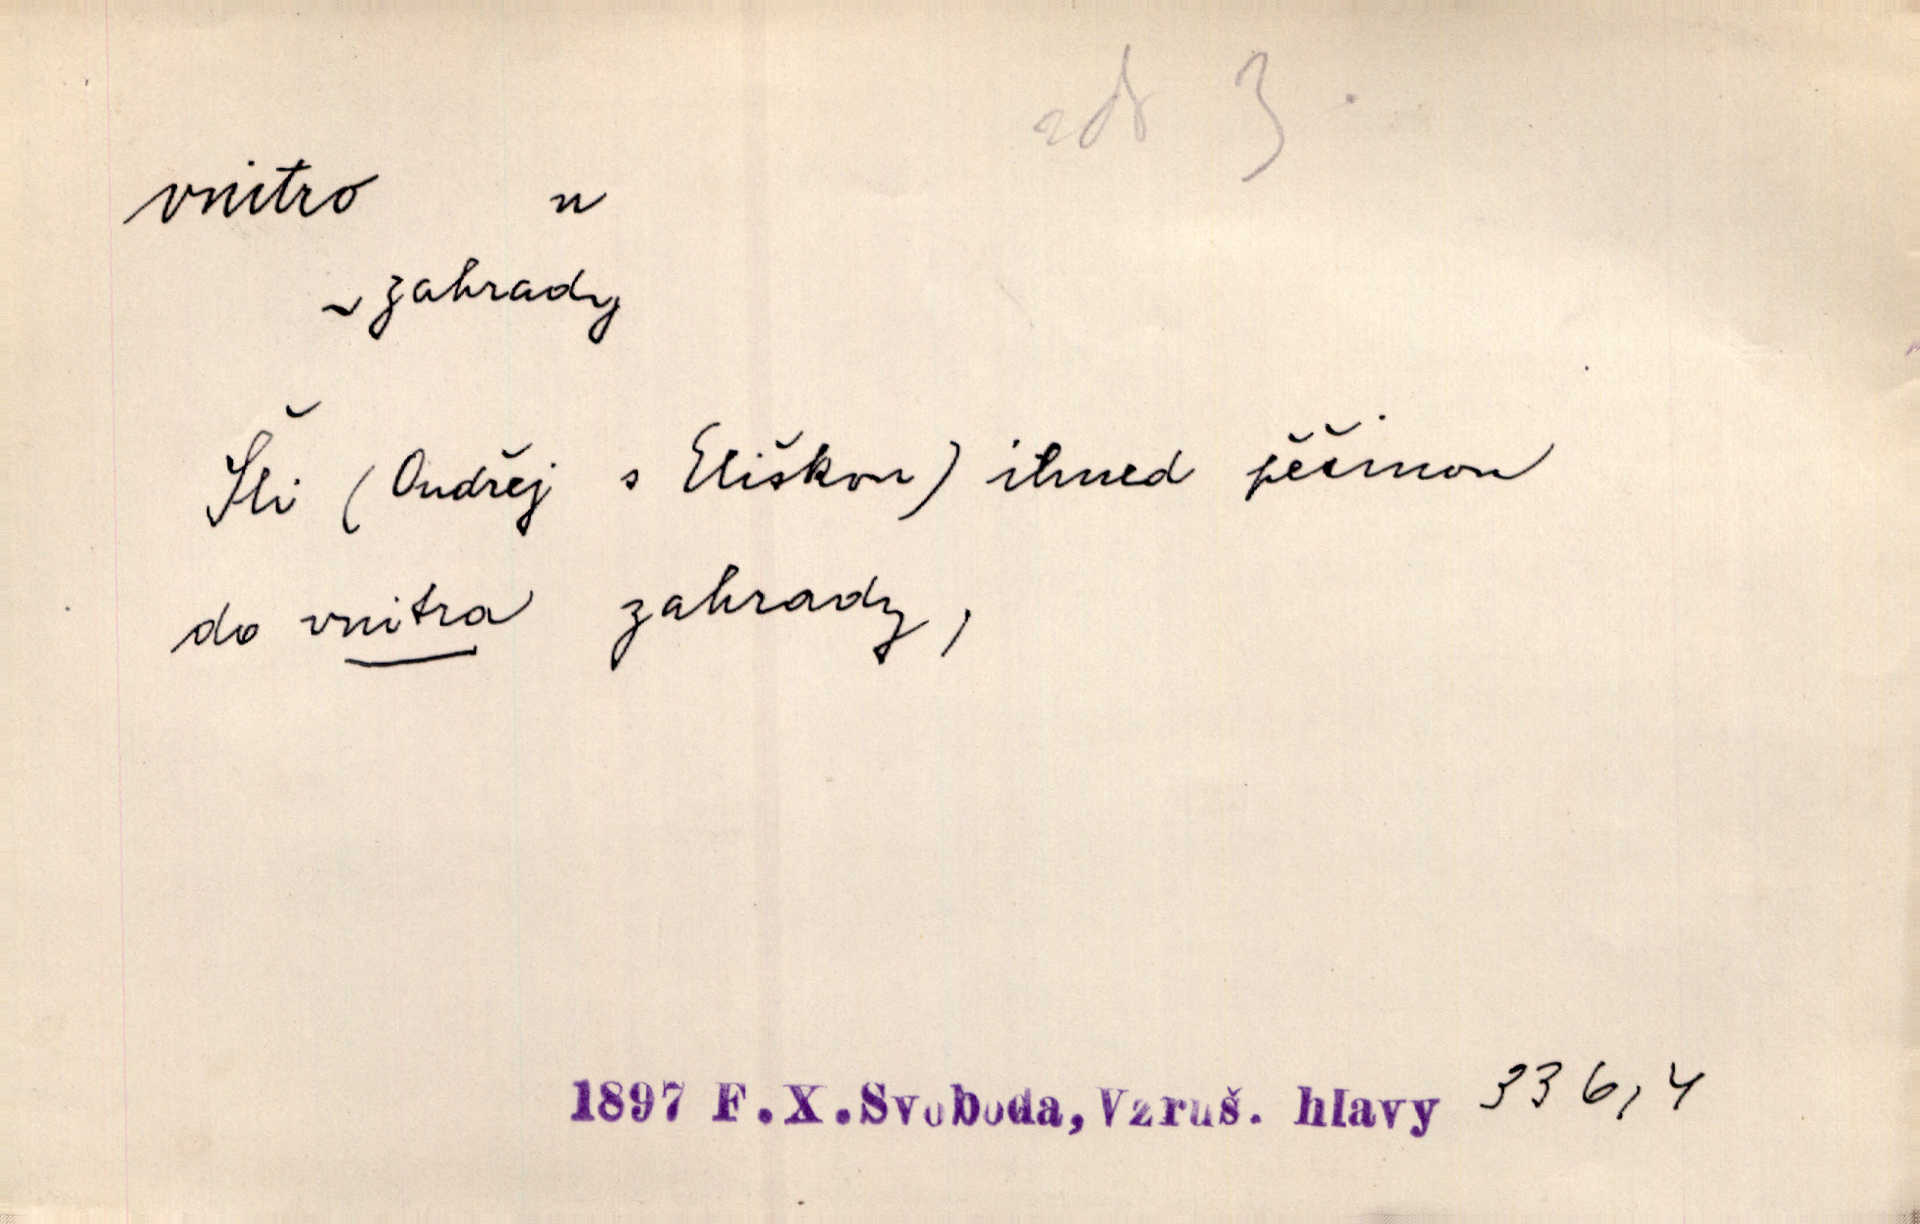 3.
vnitro n
~ zahrady
Šli (Ondřej s Eliškou) ihned pěšinou
do vnitra zahrady,
1897 F.X.Svoboda, Vzruš. hlavy 336,4